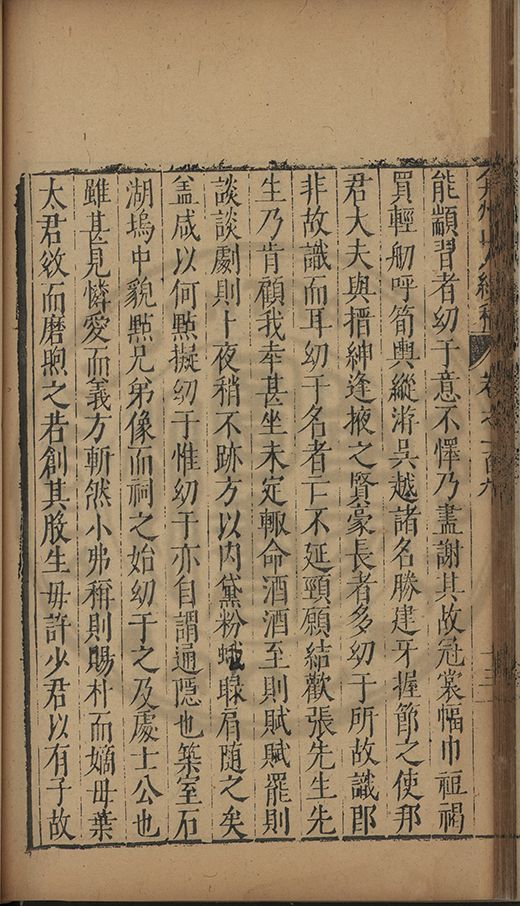 弇州山人續稿 卷之一百九 十三
能顓習者幼于意不懌乃盡謝其故冠裳幅巾袒裼
買輕舠呼筍輿縱游吳越諸名勝建牙握節之使邦
君大夫與搢紳逢掖之賢豪長者多幼于所故識即
非故識而耳幼于名者亡不延頸願結歡張先生先
生乃肯顧我幸甚坐未定輙命酒酒至則賦賦罷則
談談劇則十夜稍不跡方以內黛粉蛾睩肩随之矣
盖咸以何㸃擬幼于惟幼于亦自謂通隠也築室石
湖塢中貌㸃兄弟像而祠之始幼于之及處士公也
雖甚見憐愛而義方斬然小弗稱則賜朴而嫡母葉
太君紋而磨煦之若創其股生母許少君以有子故